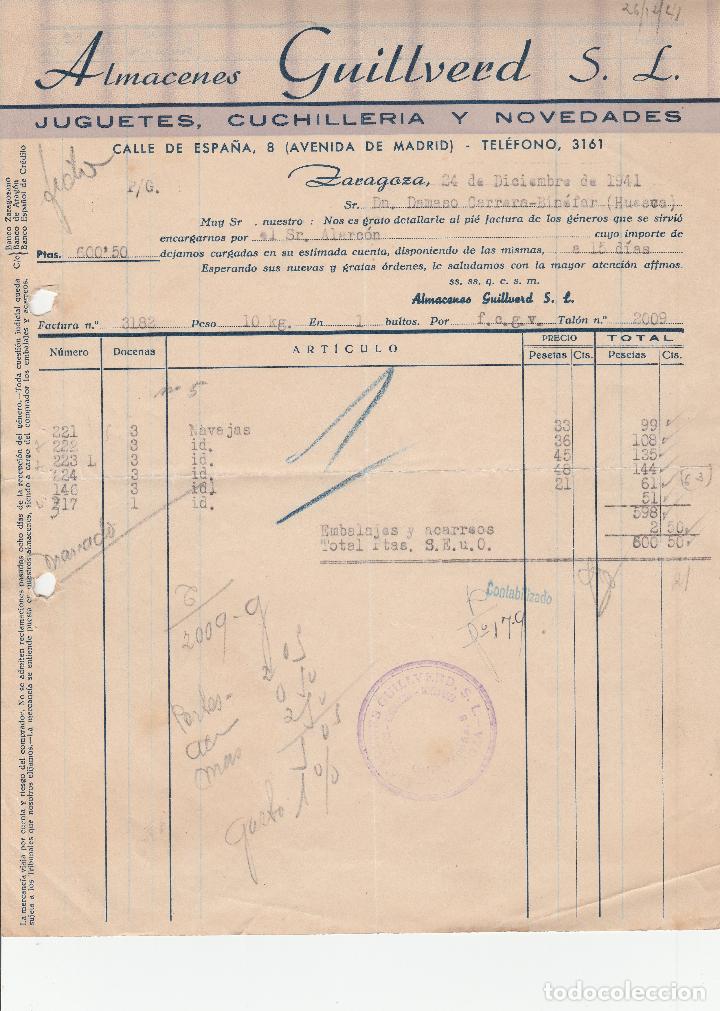 26/12/41
Almacenes Guillverd S. L.
JUGUETES, CUCHILLERIA Y NOVEDADES
CALLE DE ESPAÑA, 8 (AVENIDA DE MADRID) - TELÉFONO, 3161
P/G.
Zaragoza, 24 de Diciembre de 1941
Sr. Dn. Damaso Carrera-Binéfar (Huesca)
Muy Sr. nuestro: Nos es grato detallarle al pié factura de los géneros que se sirvió
encargarnos por el Sr. Alarcón cuyo importe de
Ptas. 600'50 dejamos cargadas en su estimada cuenta, disponiendo de las mismas, a 15 días
Esperando sus nuevas y gratas órdenes, le saludamos con la mayor atención affmos.
ss. ss. q. e. s. m.
Almacenes Guillverd S. L.
Factura n.º 3182 Peso 10 kg. En 1 bultos. Por f.c.g.v. Talón n.º 2009
Número Docenas ARTÍCULO PRECIO TOTAL
Pesetas Cts. Pesetas Cts.
nº 5
221 3 Navajas 33 99
222 3 id. 36 108
223 L 3 id. 45 135
224 3 id. 48 144
146 3 id. 21 61 (63)
217 1 id. 51
598
Embalajes y acarreos 2 50
Total Ptas. S.E.u.O. 600 50
Contabilizado
179
2009-g
Portes-
Gasto 1 %
GUILLVERD S. L.
C/c) Banco Zaragozano
Banco de Aragón
Banco Español de Crédito
La mercancía viaja por cuenta y riesgo del comprador. No se admiten reclamaciones pasadas ocho días de la recepción del género.—Toda cuestión judicial queda
sujeta a los Tribunales que nosotros elijamos.—La mercancía se entiende puesta en nuestros almacenes, siendo a cargo del comprador los embalajes y acarreos.
todocoleccion